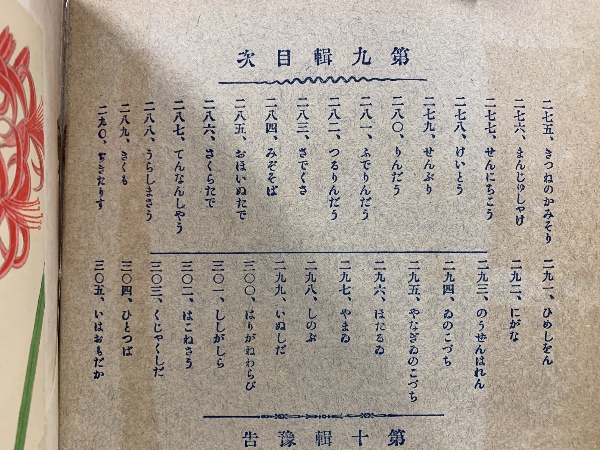 第九輯目次
二七五、きつねのかみそり
二七六、まんじゆしやけ
二七七、せんにちこう
二七八、けいとう
二七九、せんぶり
二八〇、りんだう
二八一、ふでりんだう
二八二、つるりんだう
二八三、さでくさ
二八四、みぞそば
二八五、おほいぬたで
二八六、さくらたで
二八七、てんなんしやう
二八八、うらしまさう
二八九、きくも
二九〇、ぢきたりす
二九一、ひめしをん
二九二、にがな
二九三、のうぜんはれん
二九四、ゐのこづち
二九五、やなぎゐのこづち
二九六、ほたるゐ
二九七、やまゐ
二九八、しのぶ
二九九、いぬしだ
三〇〇、はりがねわらび
三〇一、ししがしら
三〇二、はこねさう
三〇三、くじやくしだ
三〇四、ひとつば
三〇五、いはおもだか
第十輯豫告